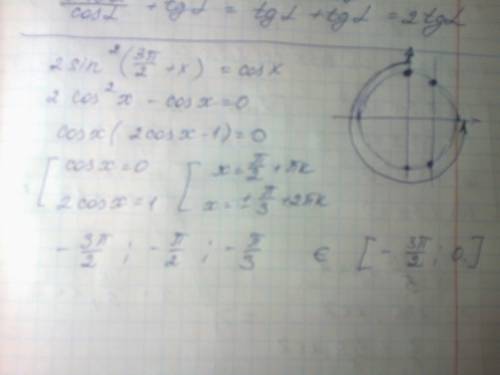 cosα + tgα = tgα + tgα = 2tgα
2sin²(3π/2 + x) = cosx
2cos²x - cosx = 0
cosx(2cosx - 1) = 0
[ cosx = 0 [ x = π/2 + πk
2cosx = 1 x = ± π/3 + 2πk
- 3π/2 ; - π/2 ; - π/3 ∈ [- 3π/2 ; 0]